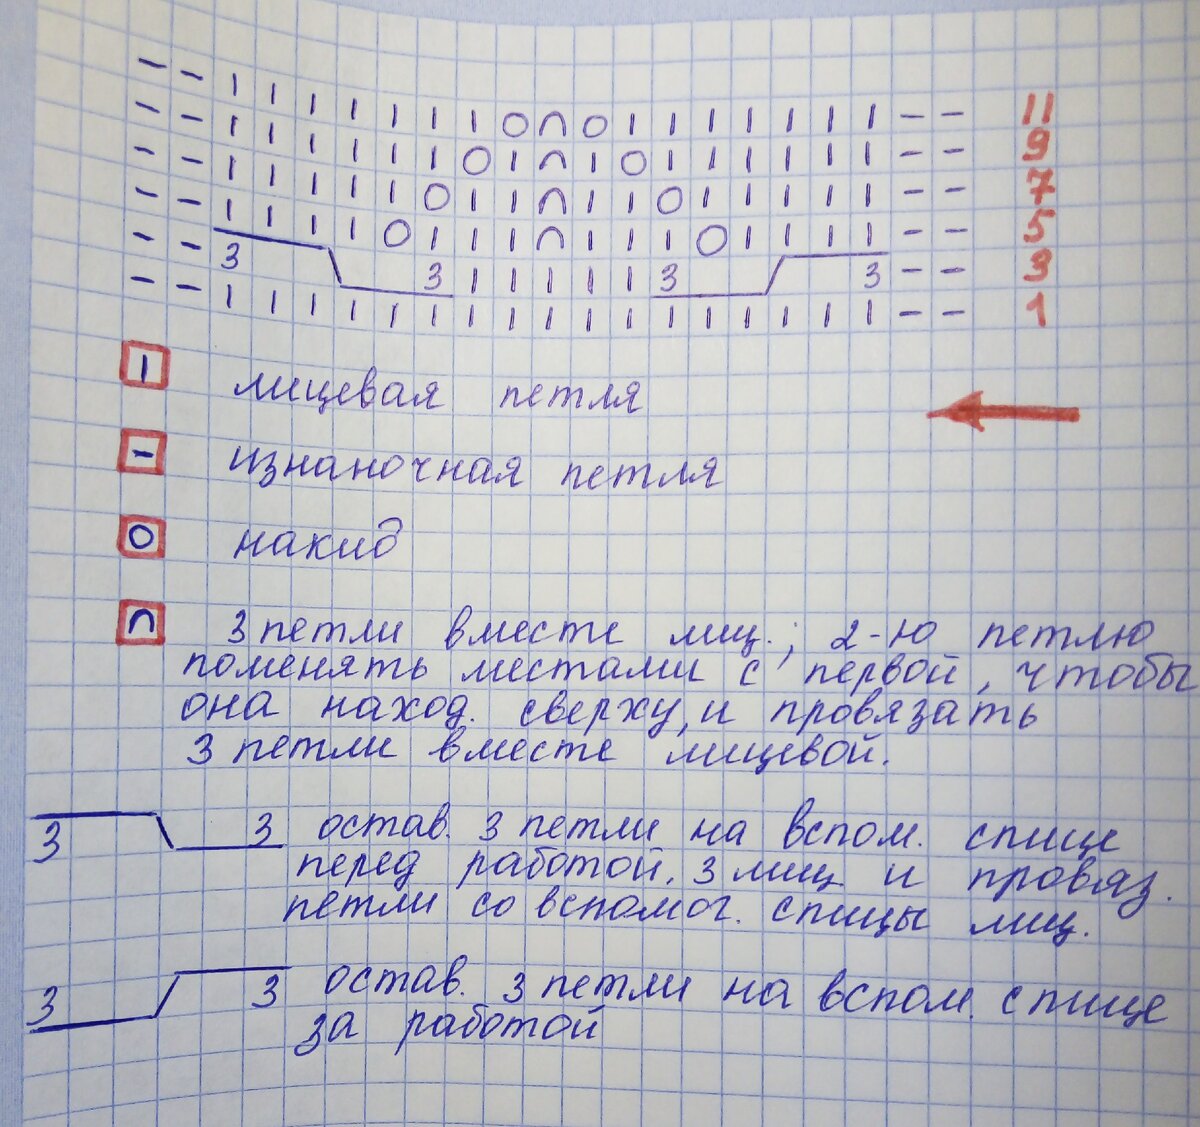 – – | | | | | | | O ∩ O | | | | | | | – – 11
– – | | | | | | O | ∩ | O | | | | | | – – 9
– – | | | | | O | | ∩ | | O | | | | | – – 7
– – | | | | O | | | ∩ | | | O | | | | – – 5
– – 3 3 | | | | | 3 3 – – 3
– – | | | | | | | | | | | | | | | | | – – 1
| лицевая петля
– изнаночная петля
O накид
∩ 3 петли вместе лиц.; 2-ю петлю
поменять местами с первой, чтобы
она наход. сверху, и провязать
3 петли вместе лицевой.
3 3 остав. 3 петли на вспом. спице
перед работой, 3 лиц и провяз.
петли со вспомог. спицы лиц.
3 3 остав. 3 петли на вспом. спице
за работой